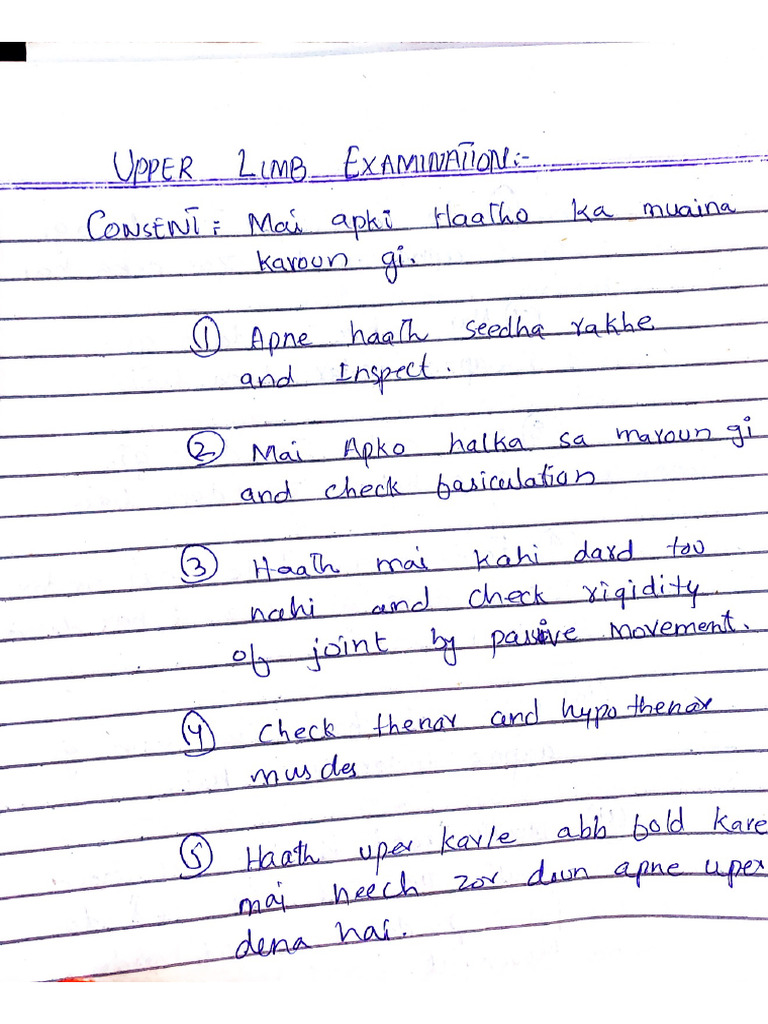 UPPER LIMB EXAMINATION:-
CONSENT: Mai apki Haatho ka muaina
karoun gi.
① Apne haath seedha rakhe
and Inspect.
② Mai Apko halka sa maroun gi
and check fasiculation
③ Haath mai kahi dard too
nahi and check rigidity
of joint by passive movement.
④ Check thenar and hypothenar
muscles
⑤ Haath uper karle abb fold kare
mai neech zor dun apne uper
dena hai.